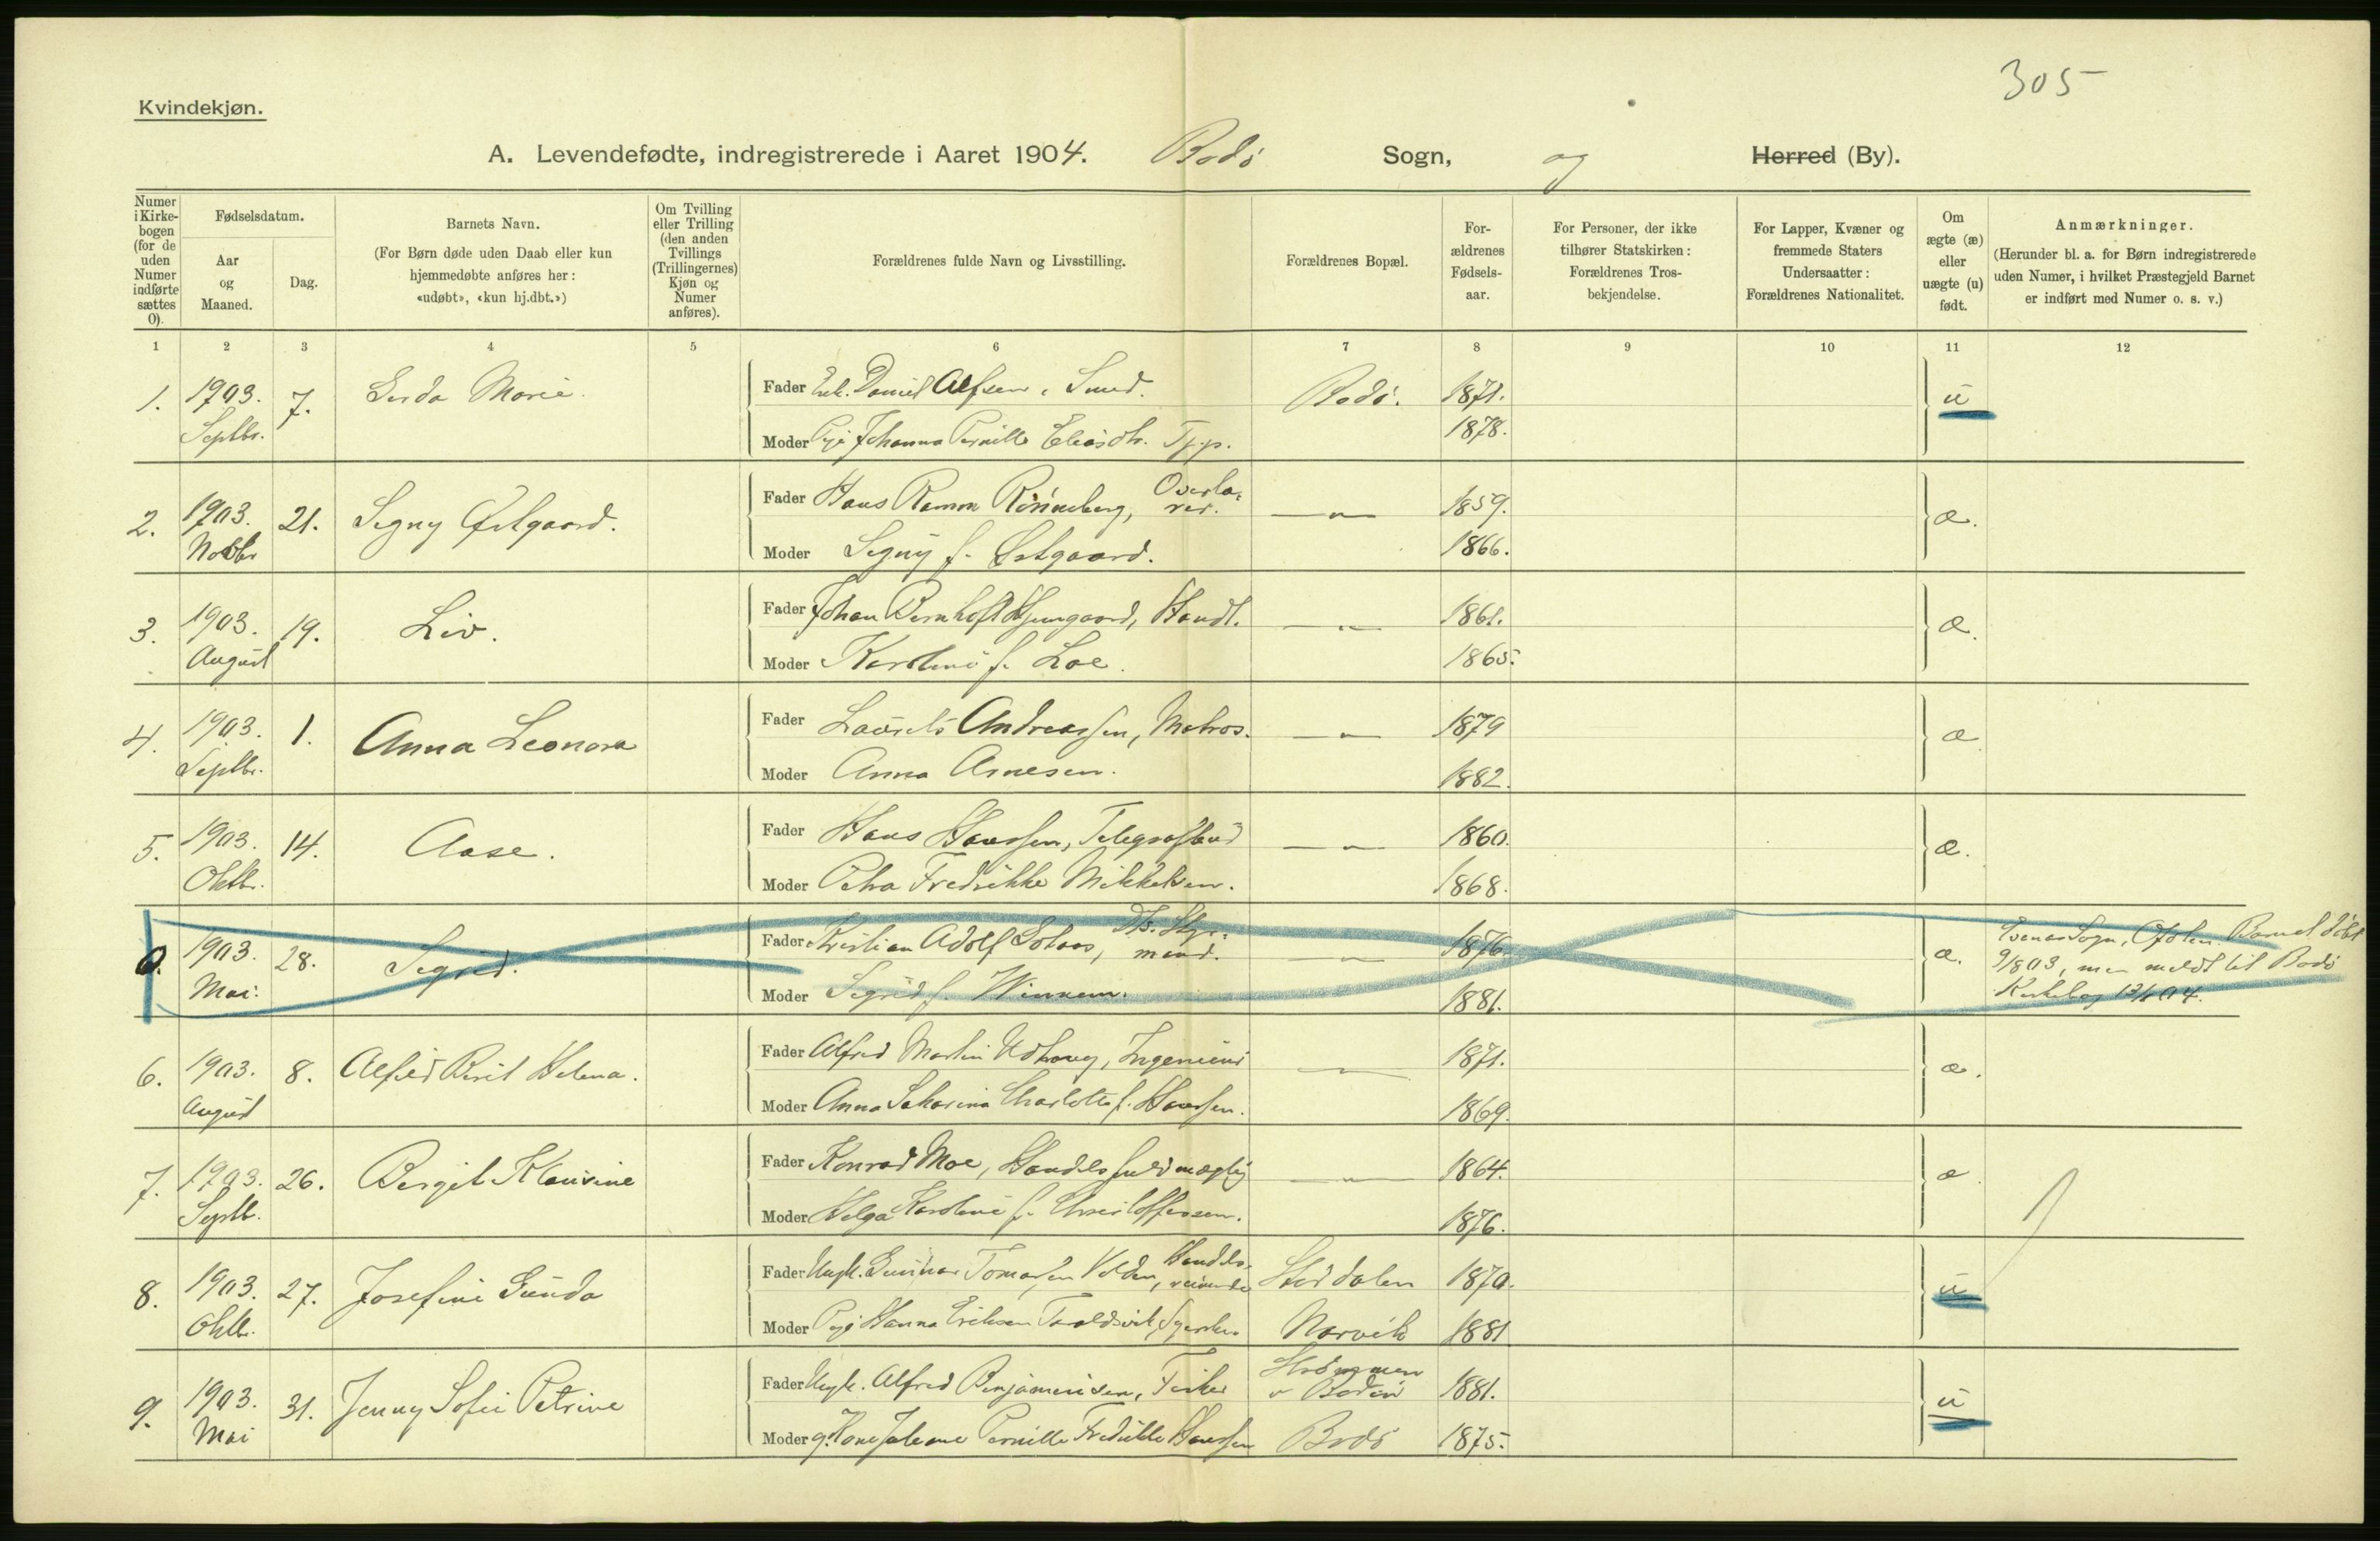 305
Kvindekjøn.
A. Levendefødte, indregistrerede i Aaret 1904. Bodø Sogn, og Herred (By).
Numer i Kirkebogen (for de uden Numer indførte sættes 0).
Fødselsdatum.
Aar og Maaned.
Dag.
Barnets Navn.
(For Børn døde uden Daab eller kun hjemmedøbte anføres her: «udøbt», «kun hj.dbt.»)
Om Tvilling eller Trilling (den anden Tvillings (Trillingernes) Kjøn og Numer anføres).
Forældrenes fulde Navn og Livsstilling.
Forældrenes Bopæl.
Forældrenes Fødselsaar.
For Personer, der ikke tilhører Statskirken: Forældrenes Trosbekjendelse.
For Lapper, Kvæner og fremmede Staters Undersaatter: Forældrenes Nationalitet.
Om ægte (æ) eller uægte (u) født.
Anmærkninger.
(Herunder bl. a. for Børn indregistrerede uden Numer, i hvilket Præstegjeld Barnet er indført med Numer o. s. v.)
1 2 3 4 5 6 7 8 9 10 11 12
1. 1903. Septbr. 7. Gerda Marie. Fader Enk. Daniel Alfsen, Smed. Bodø. 1871. u
Moder Pige Johanna Pernille Eliasdtr. Tj.p. 1878.
2. 1903. Novbr 21. Signy Østgaard. Fader Hans Ramm Rønneberg, Overlærer. — " — 1859. æ.
Moder Signy f. Østgaard. 1866.
3. 1903. August 19. Liv. Fader Johan Bernhoft Hjemgaard, Handl. — " — 1861. æ.
Moder Karoline f. Loe. 1865.
4. 1903. Septbr. 1. Anna Leonora Fader Laurits Andreassen, Matros. — " — 1879 æ
Moder Anna Arnesen. 1882.
5. 1903. Oktbr. 14. Aase. Fader Hans Hanssen, Telegrafbud — " — 1860. æ.
Moder Petra Fredrikke Mikkelsen. 1868.
0. 1903. Mai. 28. Sigrid. Fader Kristian Adolf Solaas, Ds. Styrmand. — " — 1876. æ. Evenes Sogn, Ofoten. Barnet døbt
Moder Sigrid f. Winnem. 1881. 9/8 03, men meldt til Bodø
Kirkebog 04.
6. 1903. August 8. Alfild Berit Helena. Fader Alfred Martin Udhaug, Ingeniør — " — 1871. æ.
Moder Anna Catharina Charlotte f. Hanssen. 1869.
7. 1903. Septb. 26. Bergit Klausine Fader Konrad Moe, Handelsfuldmægtig — " — 1864. æ
Moder Helga Karoline f. Christoffersen. 1876.
8. 1903. Oktbr. 27. Josefine Gunda Fader Ungk. Gunnar Tomassen Volden, Handelsreisende Stördalen 1870. u
Moder Pige Hanna Eriksen Taraldsvik, Syerske. Narvik 1881
9. 1903. Mai 31. Jenny Sofie Petrine Fader Ungk. Alfred Benjaminsen, Fisker Strømmen v Bodin 1881. u
Moder g. Kone Pernille Fredrikke Hanssen Bodø 1875.